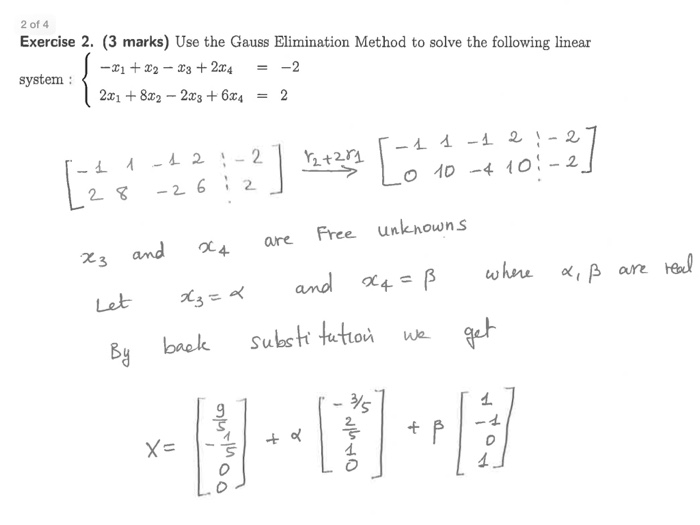 2 of 4
Exercise 2. (3 marks) Use the Gauss Elimination Method to solve the following linear
system : { −x₁ + x₂ − x₃ + 2x₄ = −2
2x₁ + 8x₂ − 2x₃ + 6x₄ = 2
[ -1 1 -1 2 ¦ -2 ] r₂+2r₁ → [ -1 1 -1 2 ¦ -2 ]
[ 2 8 -2 6 ¦ 2 ] [ 0 10 -4 10 ¦ -2 ]
x₃ and x₄ are Free unknowns
Let x₃ = α and x₄ = β where α, β are real
By back substitution we get
X = [ 9/5 -1/5 0 0 ] + α [ -3/5 2/5 1 0 ] + β [ 1 -1 0 1 ]